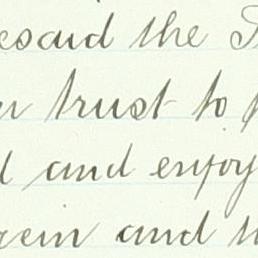 esaid the
trust to
and enjoy
rein and